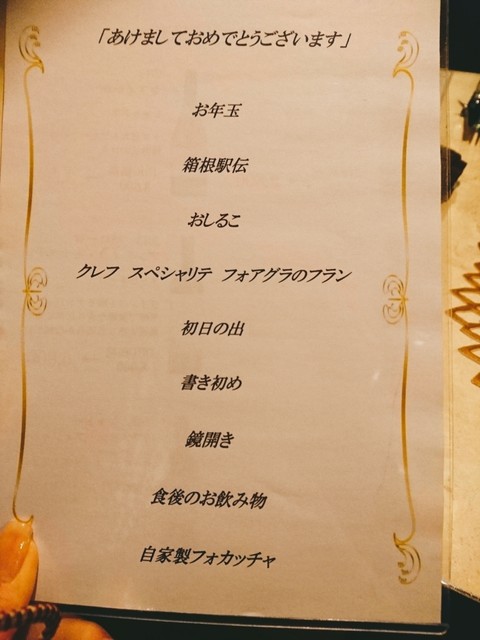 「あけましておめでとうございます」
お年玉
箱根駅伝
おしるこ
クレフ スペシャリテ フォアグラのフラン
初日の出
書き初め
鏡開き
食後のお飲み物
自家製フォカッチャ